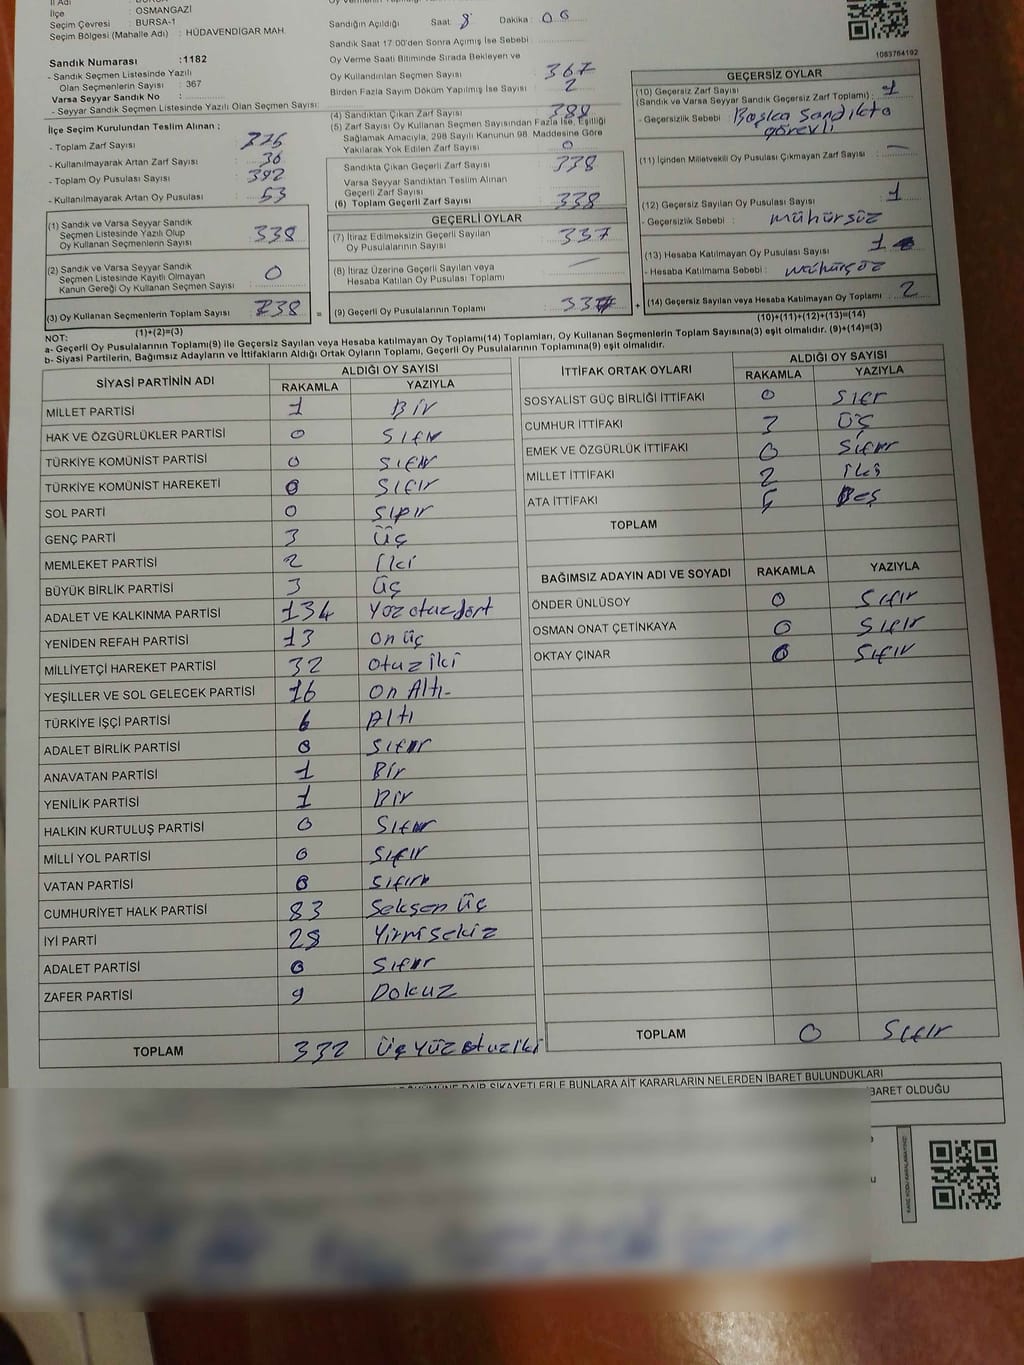 İlçe : OSMANGAZİ
Seçim Çevresi : BURSA-1
Seçim Bölgesi (Mahalle Adı) : HÜDAVENDİGAR MAH.
Sandık Numarası :1182
- Sandık Seçmen Listesinde Yazılı
Olan Seçmenlerin Sayısı : 367
Varsa Seyyar Sandık No :
- Seyyar Sandık Seçmen Listesinde Yazılı Olan Seçmen Sayısı:
İlçe Seçim Kurulundan Teslim Alınan ;
- Toplam Zarf Sayısı
- Kullanılmayarak Artan Zarf Sayısı : 36
- Toplam Oy Pusulası Sayısı : 392
- Kullanılmayarak Artan Oy Pusulası : 53
(1) Sandık ve Varsa Seyyar Sandık
Seçmen Listesinde Yazılı Olup
Oy Kullanan Seçmenlerin Sayısı : 338
(2) Sandık ve Varsa Seyyar Sandık
Seçmen Listesinde Kayıtlı Olmayan
Kanun Gereği Oy Kullanan Seçmen Sayısı : 0
(3) Oy Kullanan Seçmenlerin Toplam Sayısı : 338
(1)+(2)=(3)
Sandığın Açıldığı Saat: 8 Dakika : 06
Sandık Saat 17:00'den Sonra Açımış İse Sebebi :
Oy Verme Saati Bitiminde Sırada Bekleyen ve
Oy Kullandırılan Seçmen Sayısı : 367
Birden Fazla Sayım Döküm Yapılmış İse Sayısı : 2
(4) Sandıktan Çıkan Zarf Sayısı : 388
(5) Zarf Sayısı Oy Kullanan Seçmen Sayısından Fazla İse, Eşitliği
Sağlamak Amacıyla, 298 Sayılı Kanunun 98. Maddesine Göre
Yakılarak Yok Edilen Zarf Sayısı : 0
Sandıkta Çıkan Geçerli Zarf Sayısı : 338
Varsa Seyyar Sandıktan Teslim Alınan
Geçerli Zarf Sayısı
(6) Toplam Geçerli Zarf Sayısı : 338
GEÇERLİ OYLAR
(7) İtiraz Edilmeksizin Geçerli Sayılan
Oy Pusulalarının Sayısı : 337
(8) İtiraz Üzerine Geçerli Sayılan veya
Hesaba Katılan Oy Pusulası Toplamı : —
= (9) Geçerli Oy Pusulalarının Toplamı : 337 +
1083764192
GEÇERSİZ OYLAR
(10) Geçersiz Zarf Sayısı
(Sandık ve Varsa Seyyar Sandık Geçersiz Zarf Toplamı) : 1
- Geçersizlik Sebebi : Başka Sandıkta
görevli
(11) İçinden Milletvekili Oy Pusulası Çıkmayan Zarf Sayısı : —
(12) Geçersiz Sayılan Oy Pusulası Sayısı : 1
- Geçersizlik Sebebi : mühürsüz
(13) Hesaba Katılmayan Oy Pusulası Sayısı : 1
- Hesaba Katılmama Sebebi : mühürsüz
(14) Geçersiz Sayılan veya Hesaba Katılmayan Oy Toplamı : 2
(10)+(11)+(12)+(13)=(14)
NOT:
a- Geçerli Oy Pusulalarının Toplamı(9) ile Geçersiz Sayılan veya Hesaba Katılmayan Oy Toplamı(14) Toplamları, Oy Kullanan Seçmenlerin Toplam Sayısına(3) eşit olmalıdır. (9)+(14)=(3)
b- Siyasi Partilerin, Bağımsız Adayların ve İttifakların Aldığı Ortak Oyların Toplamı, Geçerli Oy Pusulalarının Toplamına(9) eşit olmalıdır.
SİYASİ PARTİNİN ADI ALDIĞI OY SAYISI
RAKAMLA YAZIYLA
MİLLET PARTİSİ 1 Bir
HAK VE ÖZGÜRLÜKLER PARTİSİ 0 Sıfır
TÜRKİYE KOMÜNİST PARTİSİ 0 Sıfır
TÜRKİYE KOMÜNİST HAREKETİ 0 Sıfır
SOL PARTİ 0 Sıfır
GENÇ PARTİ 3 üç
MEMLEKET PARTİSİ 2 İki
BÜYÜK BİRLİK PARTİSİ 3 üç
ADALET VE KALKINMA PARTİSİ 134 Yüzotuzdört
YENİDEN REFAH PARTİSİ 13 On üç
MİLLİYETÇİ HAREKET PARTİSİ 32 Otuz İki
YEŞİLLER VE SOL GELECEK PARTİSİ 16 On Altı
TÜRKİYE İŞÇİ PARTİSİ 6 Altı
ADALET BİRLİK PARTİSİ 0 Sıfır
ANAVATAN PARTİSİ 1 Bir
YENİLİK PARTİSİ 1 Bir
HALKIN KURTULUŞ PARTİSİ 0 Sıfır
MİLLİ YOL PARTİSİ 0 Sıfır
VATAN PARTİSİ 0 Sıfır
CUMHURİYET HALK PARTİSİ 83 Seksen üç
İYİ PARTİ 28 Yirmi sekiz
ADALET PARTİSİ 0 Sıfır
ZAFER PARTİSİ 9 Dokuz
TOPLAM 332 Üç Yüz otuz iki
İTTİFAK ORTAK OYLARI ALDIĞI OY SAYISI
RAKAMLA YAZIYLA
SOSYALİST GÜÇ BİRLİĞİ İTTİFAKI 0 Sıfır
CUMHUR İTTİFAKI 3 üç
EMEK VE ÖZGÜRLÜK İTTİFAKI 0 Sıfır
MİLLET İTTİFAKI 2 iki
ATA İTTİFAKI 5 Beş
TOPLAM
BAĞIMSIZ ADAYIN ADI VE SOYADI RAKAMLA YAZIYLA
ÖNDER ÜNLÜSOY 0 Sıfır
OSMAN ONAT ÇETİNKAYA 0 Sıfır
OKTAY ÇINAR 0 Sıfır
TOPLAM 0 Sıfır
DÖKÜMÜNE DAİR ŞİKAYETLERLE BUNLARA AİT KARARLARIN NELERDEN İBARET BULUNDUKLARI
İBARET OLDUĞU